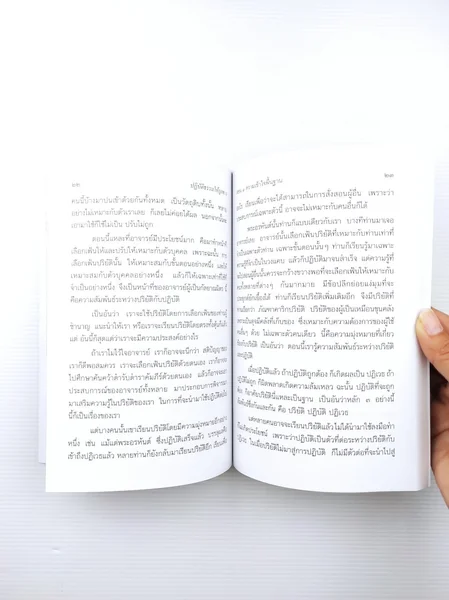 ๒๒
ปฏิบัติธรรมให้ถูกทาง
คนนี้บ้างมาปนเข้าด้วยกันทั้งหมด เป็นวัตถุดิบทั้งนั้น
อย่างไม่เหมาะกับตัวเราเลย ก็เลยไม่ค่อยได้ผล นอกจากนั้น
เอามาใช้ก็ใช้ไม่เป็น ปรับไม่ถูก
ตอนนี้แหละที่อาจารย์มีประโยชน์มาก คือมาทำหน้าที่
เลือกเฟ้นให้และปรับให้เหมาะกับตัวบุคคล การ
เลือกเฟ้นปริยัตินั้น ให้เหมาะสมกับขั้นตอนอย่างหนึ่ง และให้
เหมาะสมกับตัวบุคคลอย่างหนึ่ง แล้วก็ให้เฉพาะเท่าที่ใช้
จำเป็นอย่างหนึ่ง จึงเป็นหน้าที่ของอาจารย์ผู้เป็นกัลยาณมิตร นี้
คือความสัมพันธ์ระหว่างปริยัติกับปฏิบัติ
เป็นอันว่า เราจะใช้ปริยัติโดยการเลือกเฟ้นของท่านผู้
ชำนาญ แนะนำให้เรา หรือเราจะเรียนปริยัติโดยตรง
แต่ อันนี้ก็สุดแต่ว่าเราจะมีความประสงค์อย่างไร
ถ้าเราไม่ไว้ใจอาจารย์ เราก็อาจจะนึกว่า สติปัญญาของ
เราก็ดีพอสมควร เราจะเลือกเฟ้นปริยัติด้วยตนเอง เราก็อาจจะ
ไปศึกษาค้นคว้าตำรับตำราคัมภีร์ด้วยตนเอง แล้วก็อาจจะเอา
ประสบการณ์ของอาจารย์ทั้งหลาย มาประกอบการพิจารณา
มาเสริมความรู้ในปริยัติของเรา ในการที่จะนำมาใช้ปฏิบัตินั้น
นี้ก็เป็นเรื่องของเรา
แต่บางคนนั้นเขาเรียนปริยัติโดยมีความมุ่งหมายอีกอย่าง
หนึ่ง เช่น แม้แต่พระอรหันต์ ซึ่งปฏิบัติเสร็จแล้ว บรรลุผลคือ
เข้าถึงปฏิเวธแล้ว หลายท่านก็ยังกลับมาเรียนปริยัติอีก เรียนเพื่อ
๒๓
ความเข้าใจพื้นฐาน
อะไร เรียนเพื่อว่าจะได้สามารถในการสั่งสอนผู้อื่น เพราะว่า
ประสบการณ์เฉพาะตัวนี้ อาจจะไม่เหมาะกับคนอื่นก็ได้
พระอรหันต์นั้นท่านก็แบบเดียวกับเรา บางทีท่านมาเจอ
อาจารย์ อาจารย์นั้นเลือกเฟ้นปริยัติที่เหมาะกับท่านเท่าที่
จำเพาะตัวท่าน เฉพาะขั้นตอนนั้นๆ ท่านก็เรียนรู้มาเฉพาะ
แล้วก็ปฏิบัติมาจนสำเร็จ แต่ความรู้ที่
จะช่วยเหลือผู้อื่นนั้นควรจะกว้างขวางพอที่จะเลือกเฟ้นให้เหมาะกับ
มากมาย มีข้อปลีกย่อยแง่มุมที่จะ
ท่านก็เรียนปริยัติเพิ่มเติมอีก จึงมีปริยัติที่
เรียกว่า ภัณฑาคาริกปริยัติ ปริยัติของผู้เป็นเหมือนขุนคลัง
ซึ่งเหมาะกับความต้องการของผู้ใช้
อื่นๆ ด้วย ไม่เฉพาะตัวคนเดียว นี้คือความมุ่งหมายที่เกี่ยว
กับปริยัติ เป็นอันว่า ตอนนี้เรารู้ความสัมพันธ์ระหว่างปริยัติ
กับปฏิบัติ
เมื่อปฏิบัติแล้ว ถ้าปฏิบัติถูกต้อง ก็เกิดผลเป็น ปฏิเวธ ถ้า
ปฏิบัติไม่ถูก ก็ผิดพลาดเกิดความล้มเหลว ฉะนั้น ปฏิบัติที่จะถูก
ต้อง ก็อาศัยปริยัตินี้แหละเป็นฐาน เป็นอันว่าหลัก ๓ อย่างนี้
สัมพันธ์ซึ่งกันและกัน คือ ปริยัติ ปฏิบัติ ปฏิเวธ
แต่หลายคนอาจจะเรียนปริยัติแล้วไม่ได้นำมาใช้ลงมือทำ
ก็ไม่เกิดประโยชน์ เพราะว่าปฏิบัติเป็นตัวที่ต่อระหว่างปริยัติกับ
ปฏิเวธ ในเมื่อปริยัติไม่มาสู่การปฏิบัติ ก็ไม่มีตัวต่อที่จะนำไปสู่